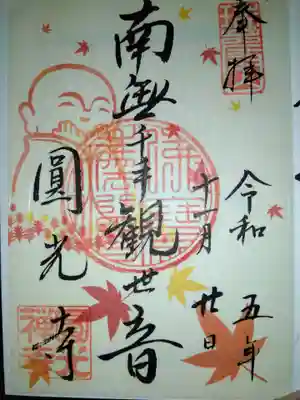 奉拝
令和五年
十一月廿日
南無千手観世音
圓光寺
佛法僧寶